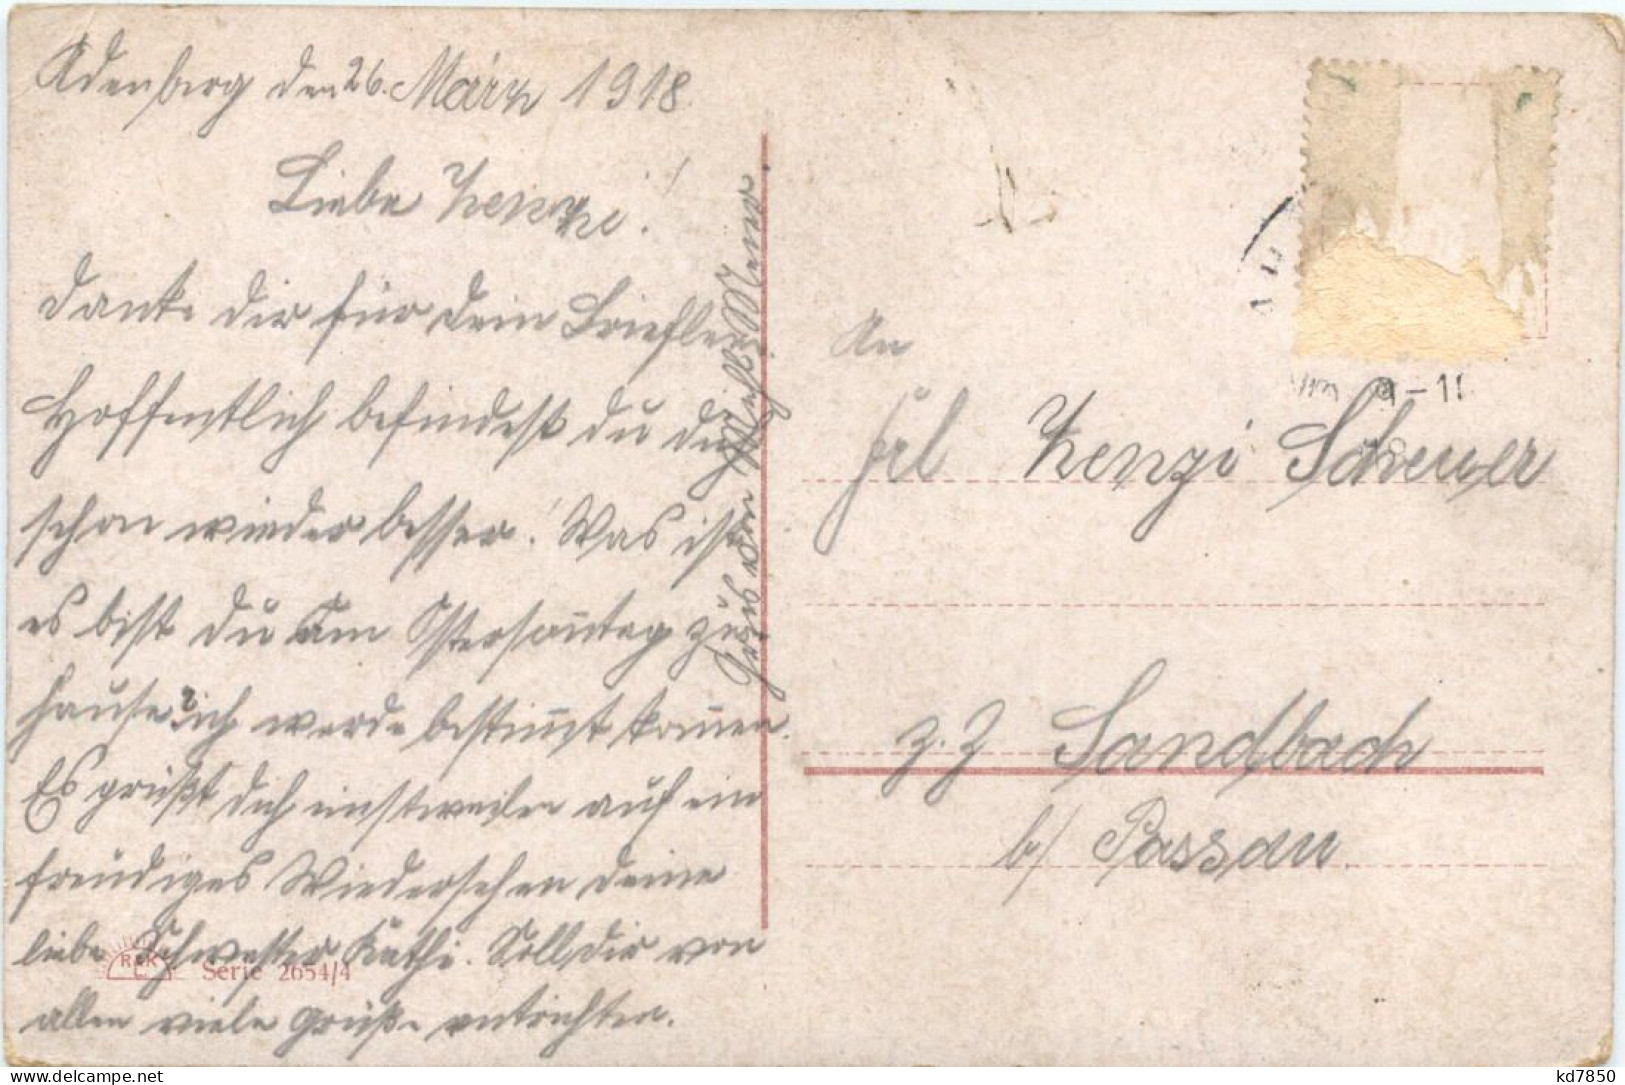 Adenberg den 26. März 1918.
Liebe Zenzi!
Danke dir für dein Brieflein.
Hoffentlich befindest du dich
schon wieder besser! Was ist
es bist du am Ostersonntag zu
hause? ich werde bestimmt kommen.
Es grüßt dich einstweilen auf ein
freudiges Wiedersehen deine
liebe Schwester Kathi. Soll dir von
allen viele Grüße entrichten.
Gruß von
R&K
L.
Serie 2654/4
An
Frl Zenzi Scheuer
z. Z Sandbach
b/ Passau
9-10
kd7850